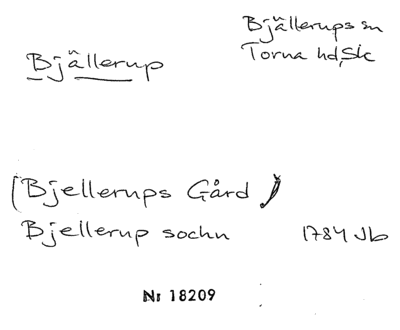 Bjällerup
Bjällerups sn
Torna hd, Sk
(Bjellerups Gård)
Bjellerup sochn 1784 Jb
Nr 18209